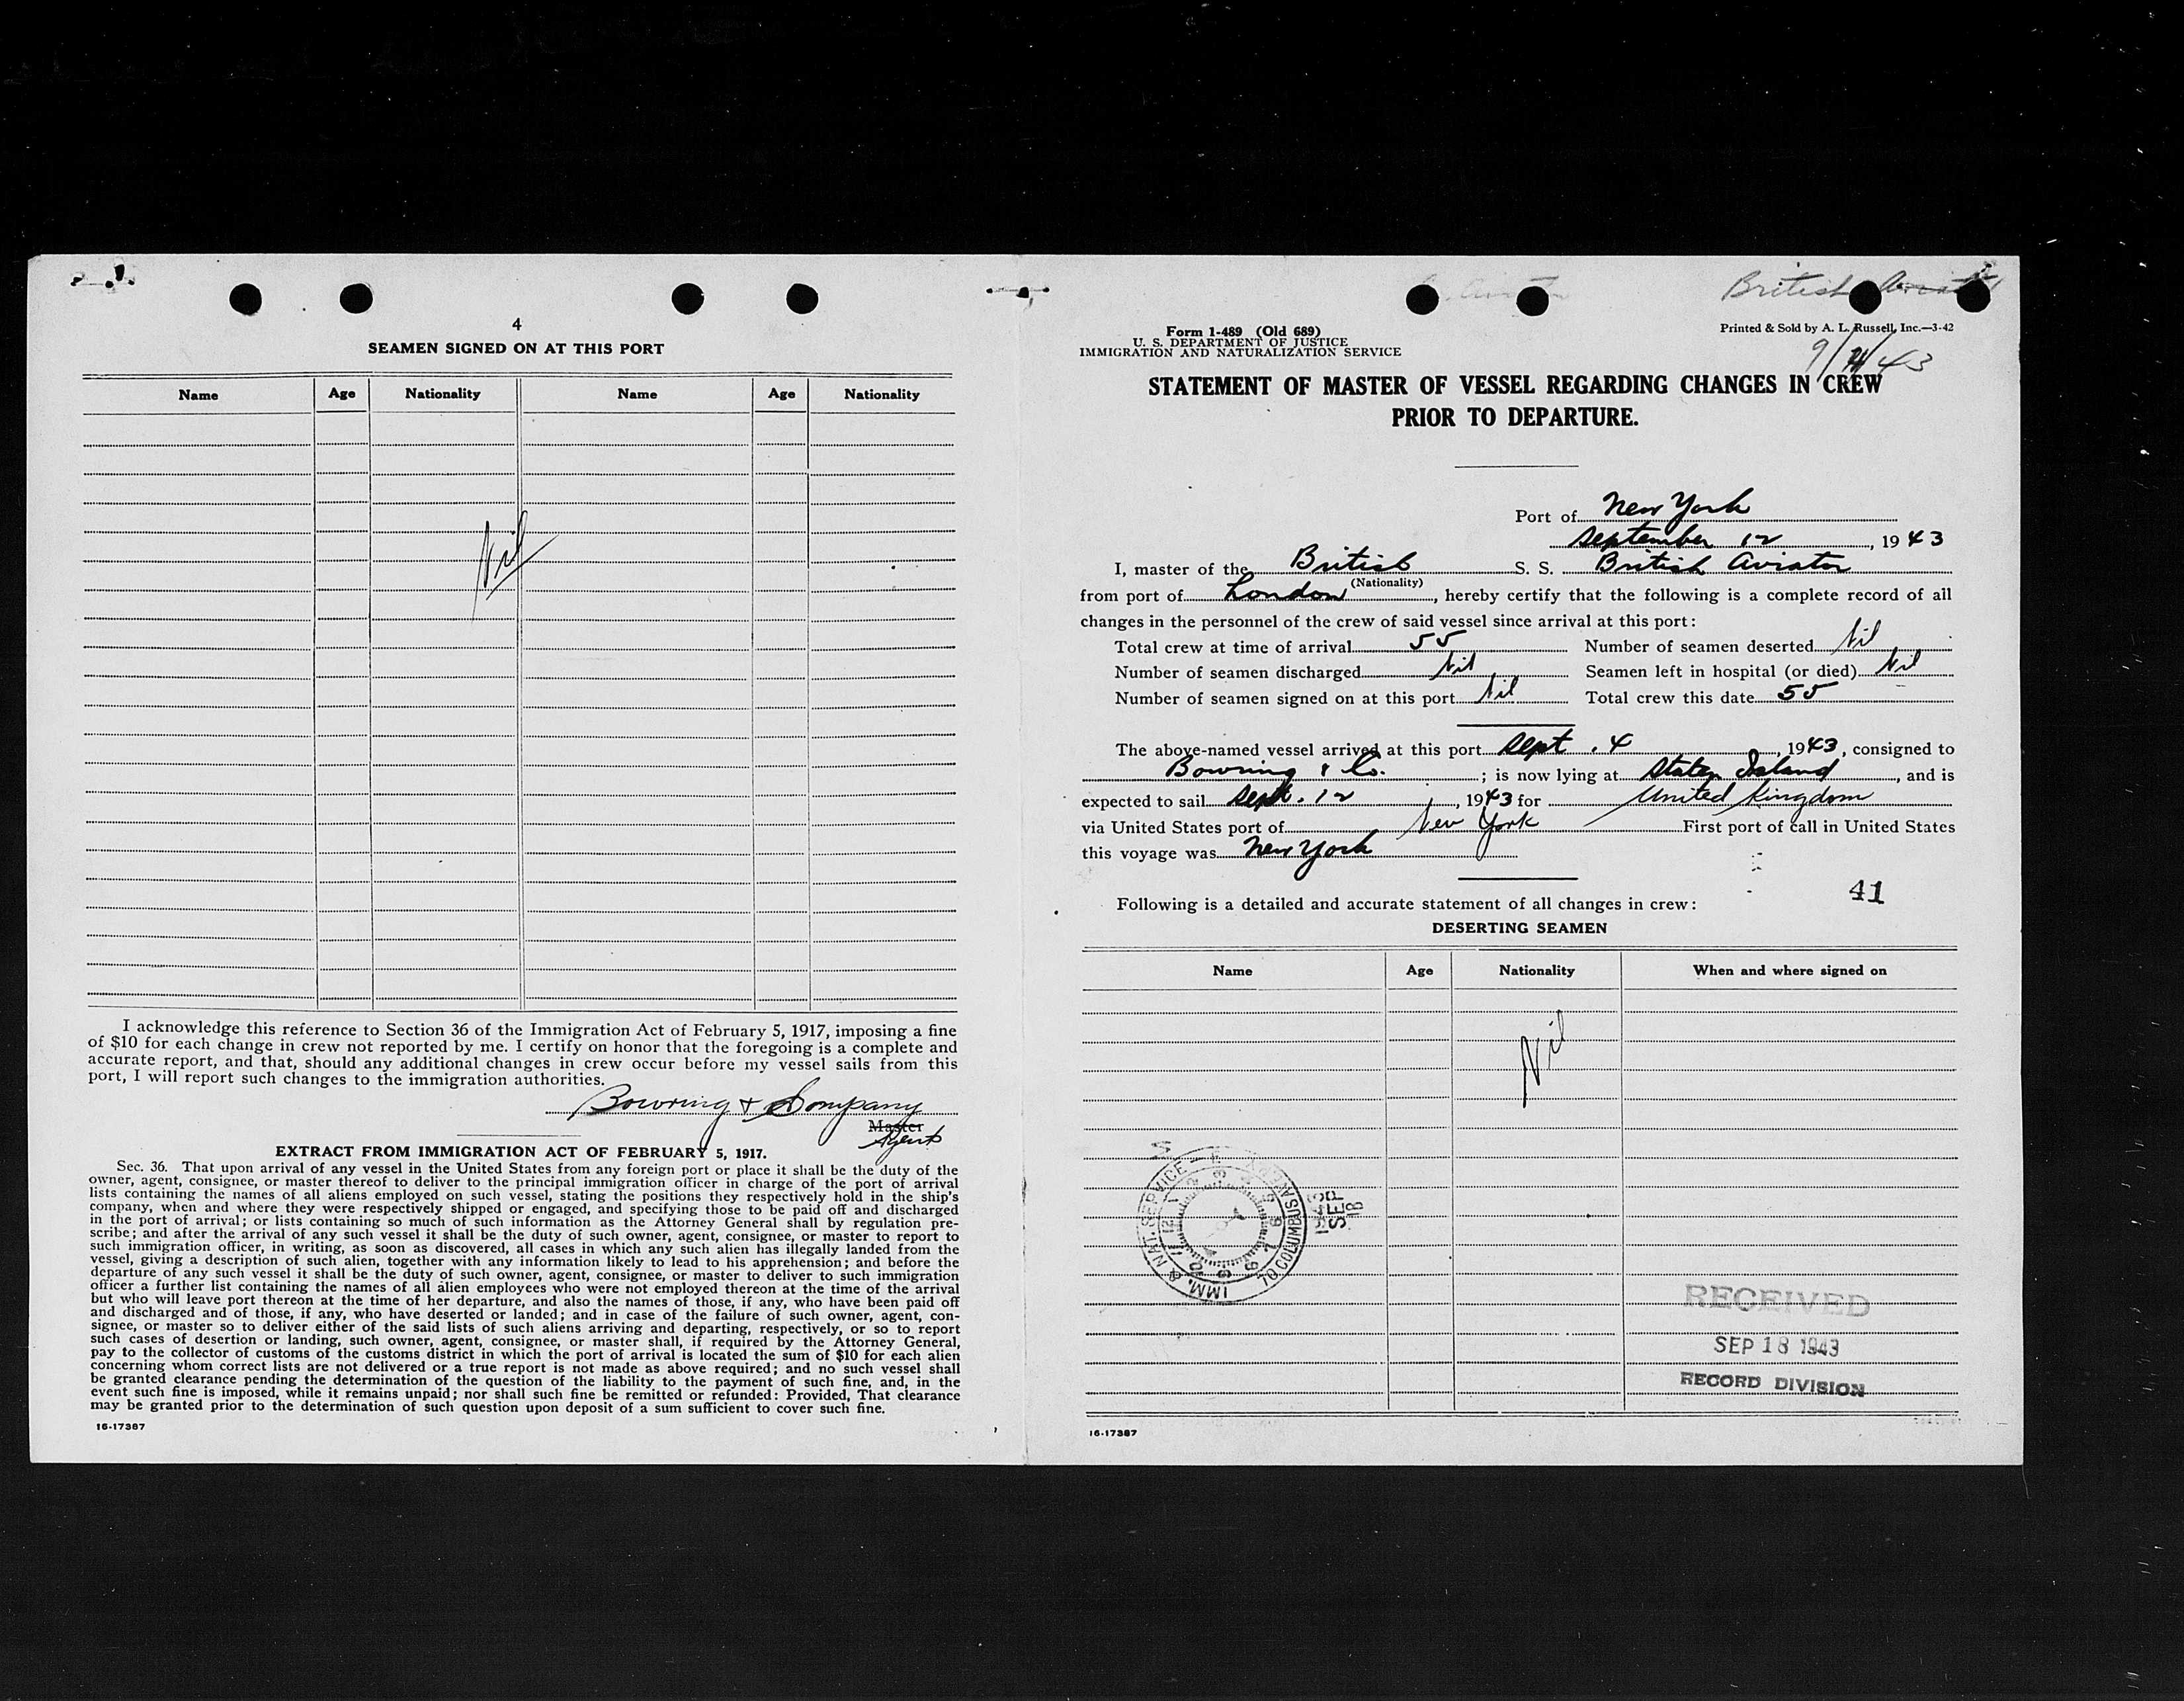 4
SEAMEN SIGNED ON AT THIS PORT
Name Age Nationality Name Age Nationality
Nil
I acknowledge this reference to Section 36 of the Immigration Act of February 5, 1917, imposing a fine
of $10 for each change in crew not reported by me. I certify on honor that the foregoing is a complete and
accurate report, and that, should any additional changes in crew occur before my vessel sails from this
port, I will report such changes to the immigration authorities.
Bowring & Company
Master
Agent
EXTRACT FROM IMMIGRATION ACT OF FEBRUARY 5, 1917.
Sec. 36. That upon arrival of any vessel in the United States from any foreign port or place it shall be the duty of the
owner, agent, consignee, or master thereof to deliver to the principal immigration officer in charge of the port of arrival
lists containing the names of all aliens employed on such vessel, stating the positions they respectively hold in the ship's
company, when and where they were respectively shipped or engaged, and specifying those to be paid off and discharged
in the port of arrival; or lists containing so much of such information as the Attorney General shall by regulation pre-
scribe; and after the arrival of any such vessel it shall be the duty of such owner, agent, consignee, or master to report to
such immigration officer, in writing, as soon as discovered, all cases in which any such alien has illegally landed from the
vessel, giving a description of such alien, together with any information likely to lead to his apprehension; and before the
departure of any such vessel it shall be the duty of such owner, agent, consignee, or master to deliver to such immigration
officer a further list containing the names of all alien employees who were not employed thereon at the time of the arrival
but who will leave port thereon at the time of her departure, and also the names of those, if any, who have been paid off
and discharged and of those, if any, who have deserted or landed; and in case of the failure of such owner, agent, con-
signee, or master so to deliver either of the said lists of such aliens arriving and departing, respectively, or so to report
such cases of desertion or landing, such owner, agent, consignee, or master shall, if required by the Attorney General,
pay to the collector of customs of the customs district in which the port of arrival is located the sum of $10 for each alien
concerning whom correct lists are not delivered or a true report is not made as above required; and no such vessel shall
be granted clearance pending the determination of the question of the liability to the payment of such fine, and, in the
event such fine is imposed, while it remains unpaid; nor shall such fine be remitted or refunded: Provided, That clearance
may be granted prior to the determination of such question upon deposit of a sum sufficient to cover such fine.
16-17387
British
Form 1-489 (Old 689)
U. S. DEPARTMENT OF JUSTICE
IMMIGRATION AND NATURALIZATION SERVICE
Printed & Sold by A. L. Russell, Inc.—3-42
9/4/43
STATEMENT OF MASTER OF VESSEL REGARDING CHANGES IN CREW
PRIOR TO DEPARTURE.
Port of New York
September 12, 1943
I, master of the British S. S. British Aviator
(Nationality)
from port of London, hereby certify that the following is a complete record of all
changes in the personnel of the crew of said vessel since arrival at this port:
Total crew at time of arrival 55 Number of seamen deserted Nil
Number of seamen discharged Nil Seamen left in hospital (or died) Nil
Number of seamen signed on at this port Nil Total crew this date 55
The above-named vessel arrived at this port Sept. 4, 1943, consigned to
Bowring & Co.; is now lying at Staten Island, and is
expected to sail Sept. 12, 1943 for United Kingdom
via United States port of New York First port of call in United States
this voyage was New York
41
Following is a detailed and accurate statement of all changes in crew:
DESERTING SEAMEN
Name Age Nationality When and where signed on
Nil
IMM. & NAT. SERVICE
70 COLUMBUS AVE.
1943
SEP
18
RECEIVED
SEP 18 1943
RECORD DIVISION
16-17387